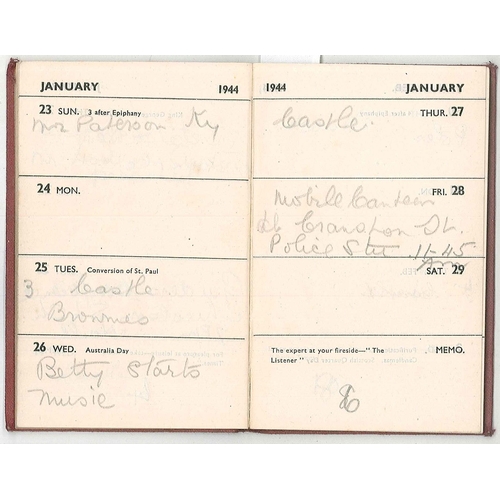 JANUARY 1944
23 SUN. 3 after Epiphany
Mrs Paterson Ky
24 MON.
25 TUES. Conversion of St. Paul
3 Castle
Brownies
26 WED. Australia Day
Betty Starts
Music
1944 JANUARY
THUR. 27
Castle.
FRI. 28
Mobile Canteen
Cranston St.
Police Stn. 11-45
SAT. 29
The expert at your fireside—"The MEMO.
Listener"